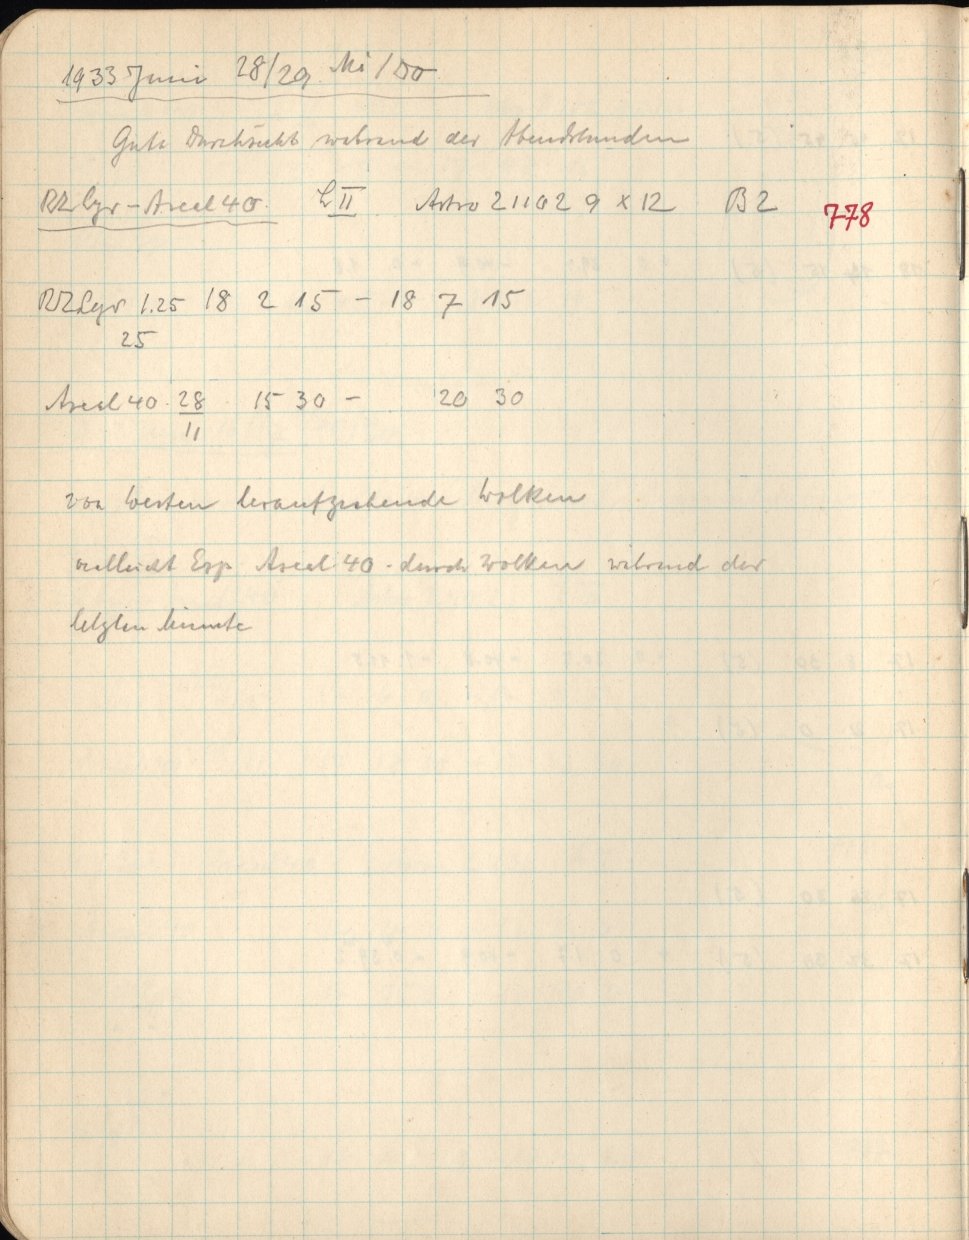 1933 Juni 28/29 Mi/Do
Gute Durchsicht während der Abendstunden
RR Lyr – Areal 40 L II Astro 211029 9 x 12 B2 778
RR Lyr 1.25 18 2 15 – 18 7 15
25
Areal 40 28 15 30 – 20 30
11
von Westen heraufziehende Wolken
vielleicht Exp Areal 40 - durch Wolken während der
letzten Minute